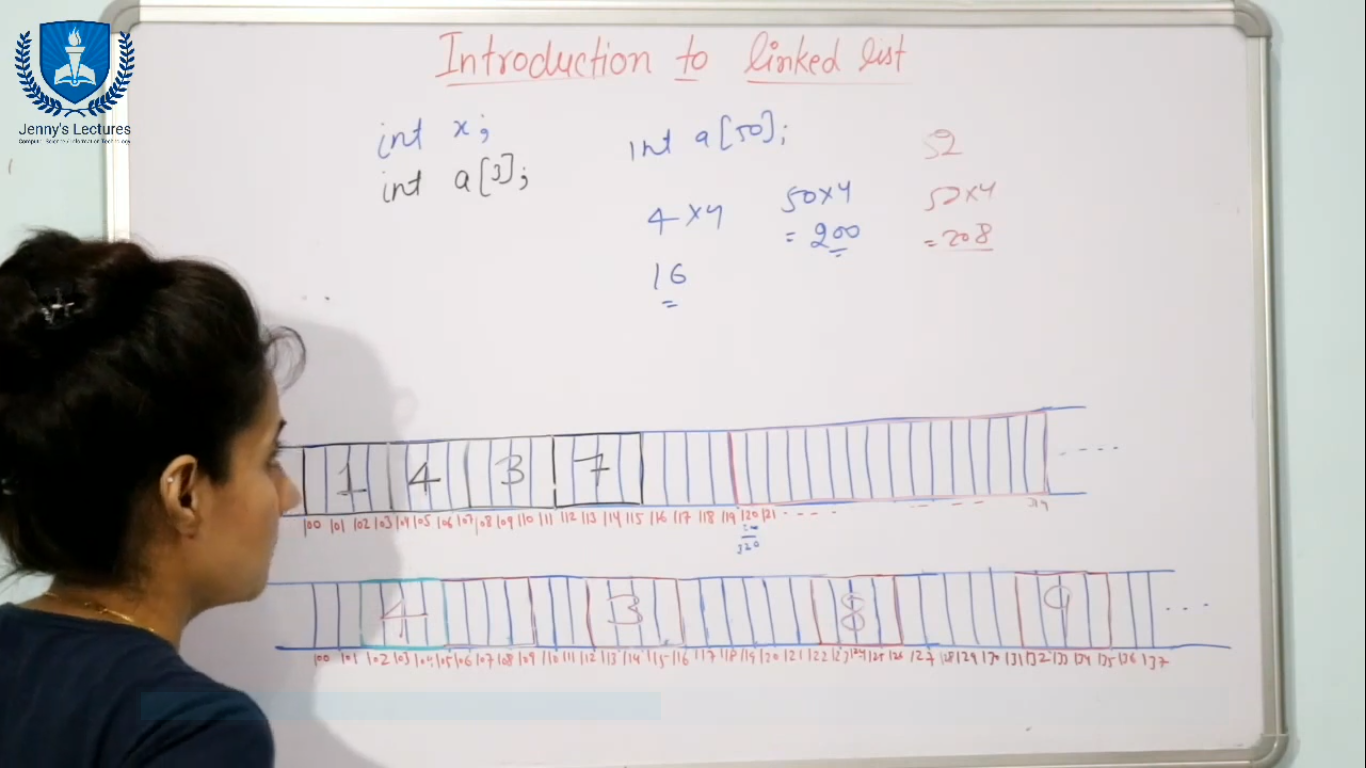 Jenny's Lectures
Computer Science/Information Technology
Introduction to linked list
int x;
int a[3];
int a[50];
52
4 x 4
50x4
52x4
= 200
= 208
16
1 4 3 7
100 101 102 103 104 105 106 107 108 109 110 111 112 113 114 115 116 117 118 119 120 121 - - - - - - - 319
320
4 3 8 9
100 101 102 103 104 105 106 107 108 109 110 111 112 113 114 115 116 117 118 119 120 121 122 123 124 125 126 127 128 129 130 131 132 133 134 135 136 137